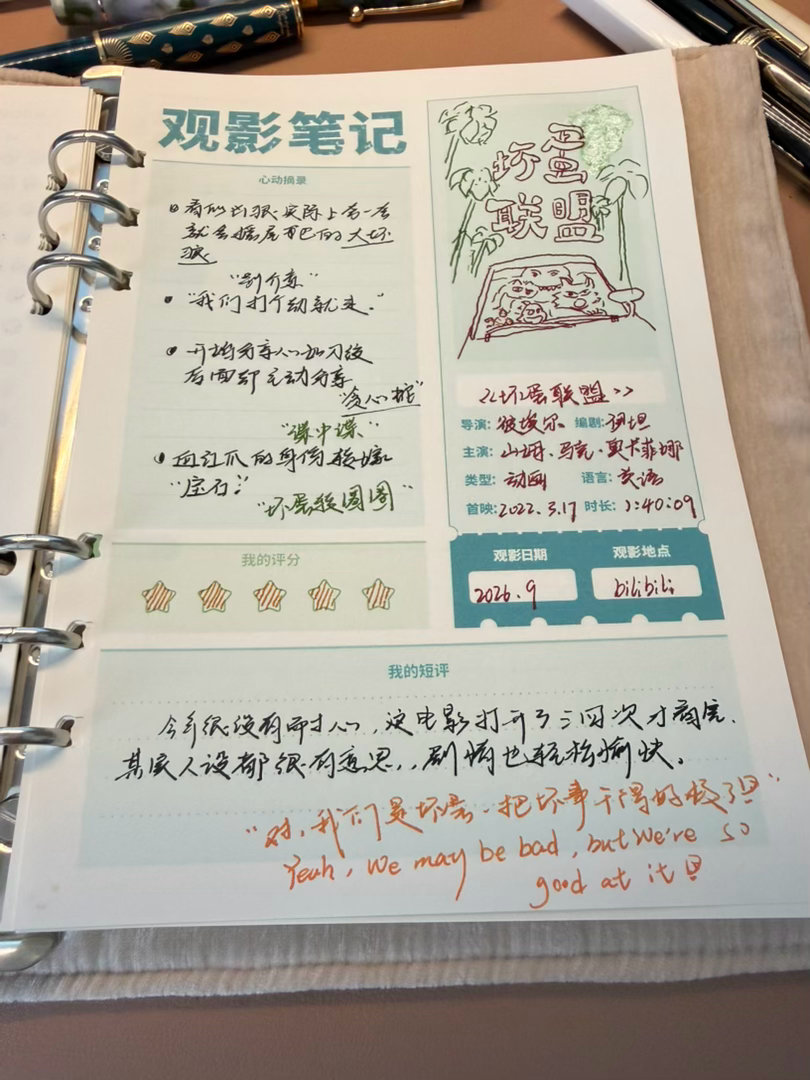 观影笔记
心动摘录
看似凶狠.实际上
就会摇尾巴的大坏
狼
"别介意"
"我们打个劫就走."
开始分享
后面却主动分享
"贪心
"谍中谍"
的身份
"宝石"
"坏蛋
我的评分
坏蛋
联盟
《坏蛋联盟》
导演:彼埃尔 编剧:伊坦
主演:山姆、马克·奥卡菲娜
类型:动画 语言:英语
首映:2022.3.17 时长:1:40:09
观影日期 观影地点
2026.9 bilibili
我的短评
今年很没有耐心,这电影打开了三四次才看完.
人设都很有意思,,剧情也轻松愉快。
"对,我们是坏蛋.把坏事干得好极了!"
Yeah, we may be bad, but we're so
good at it!